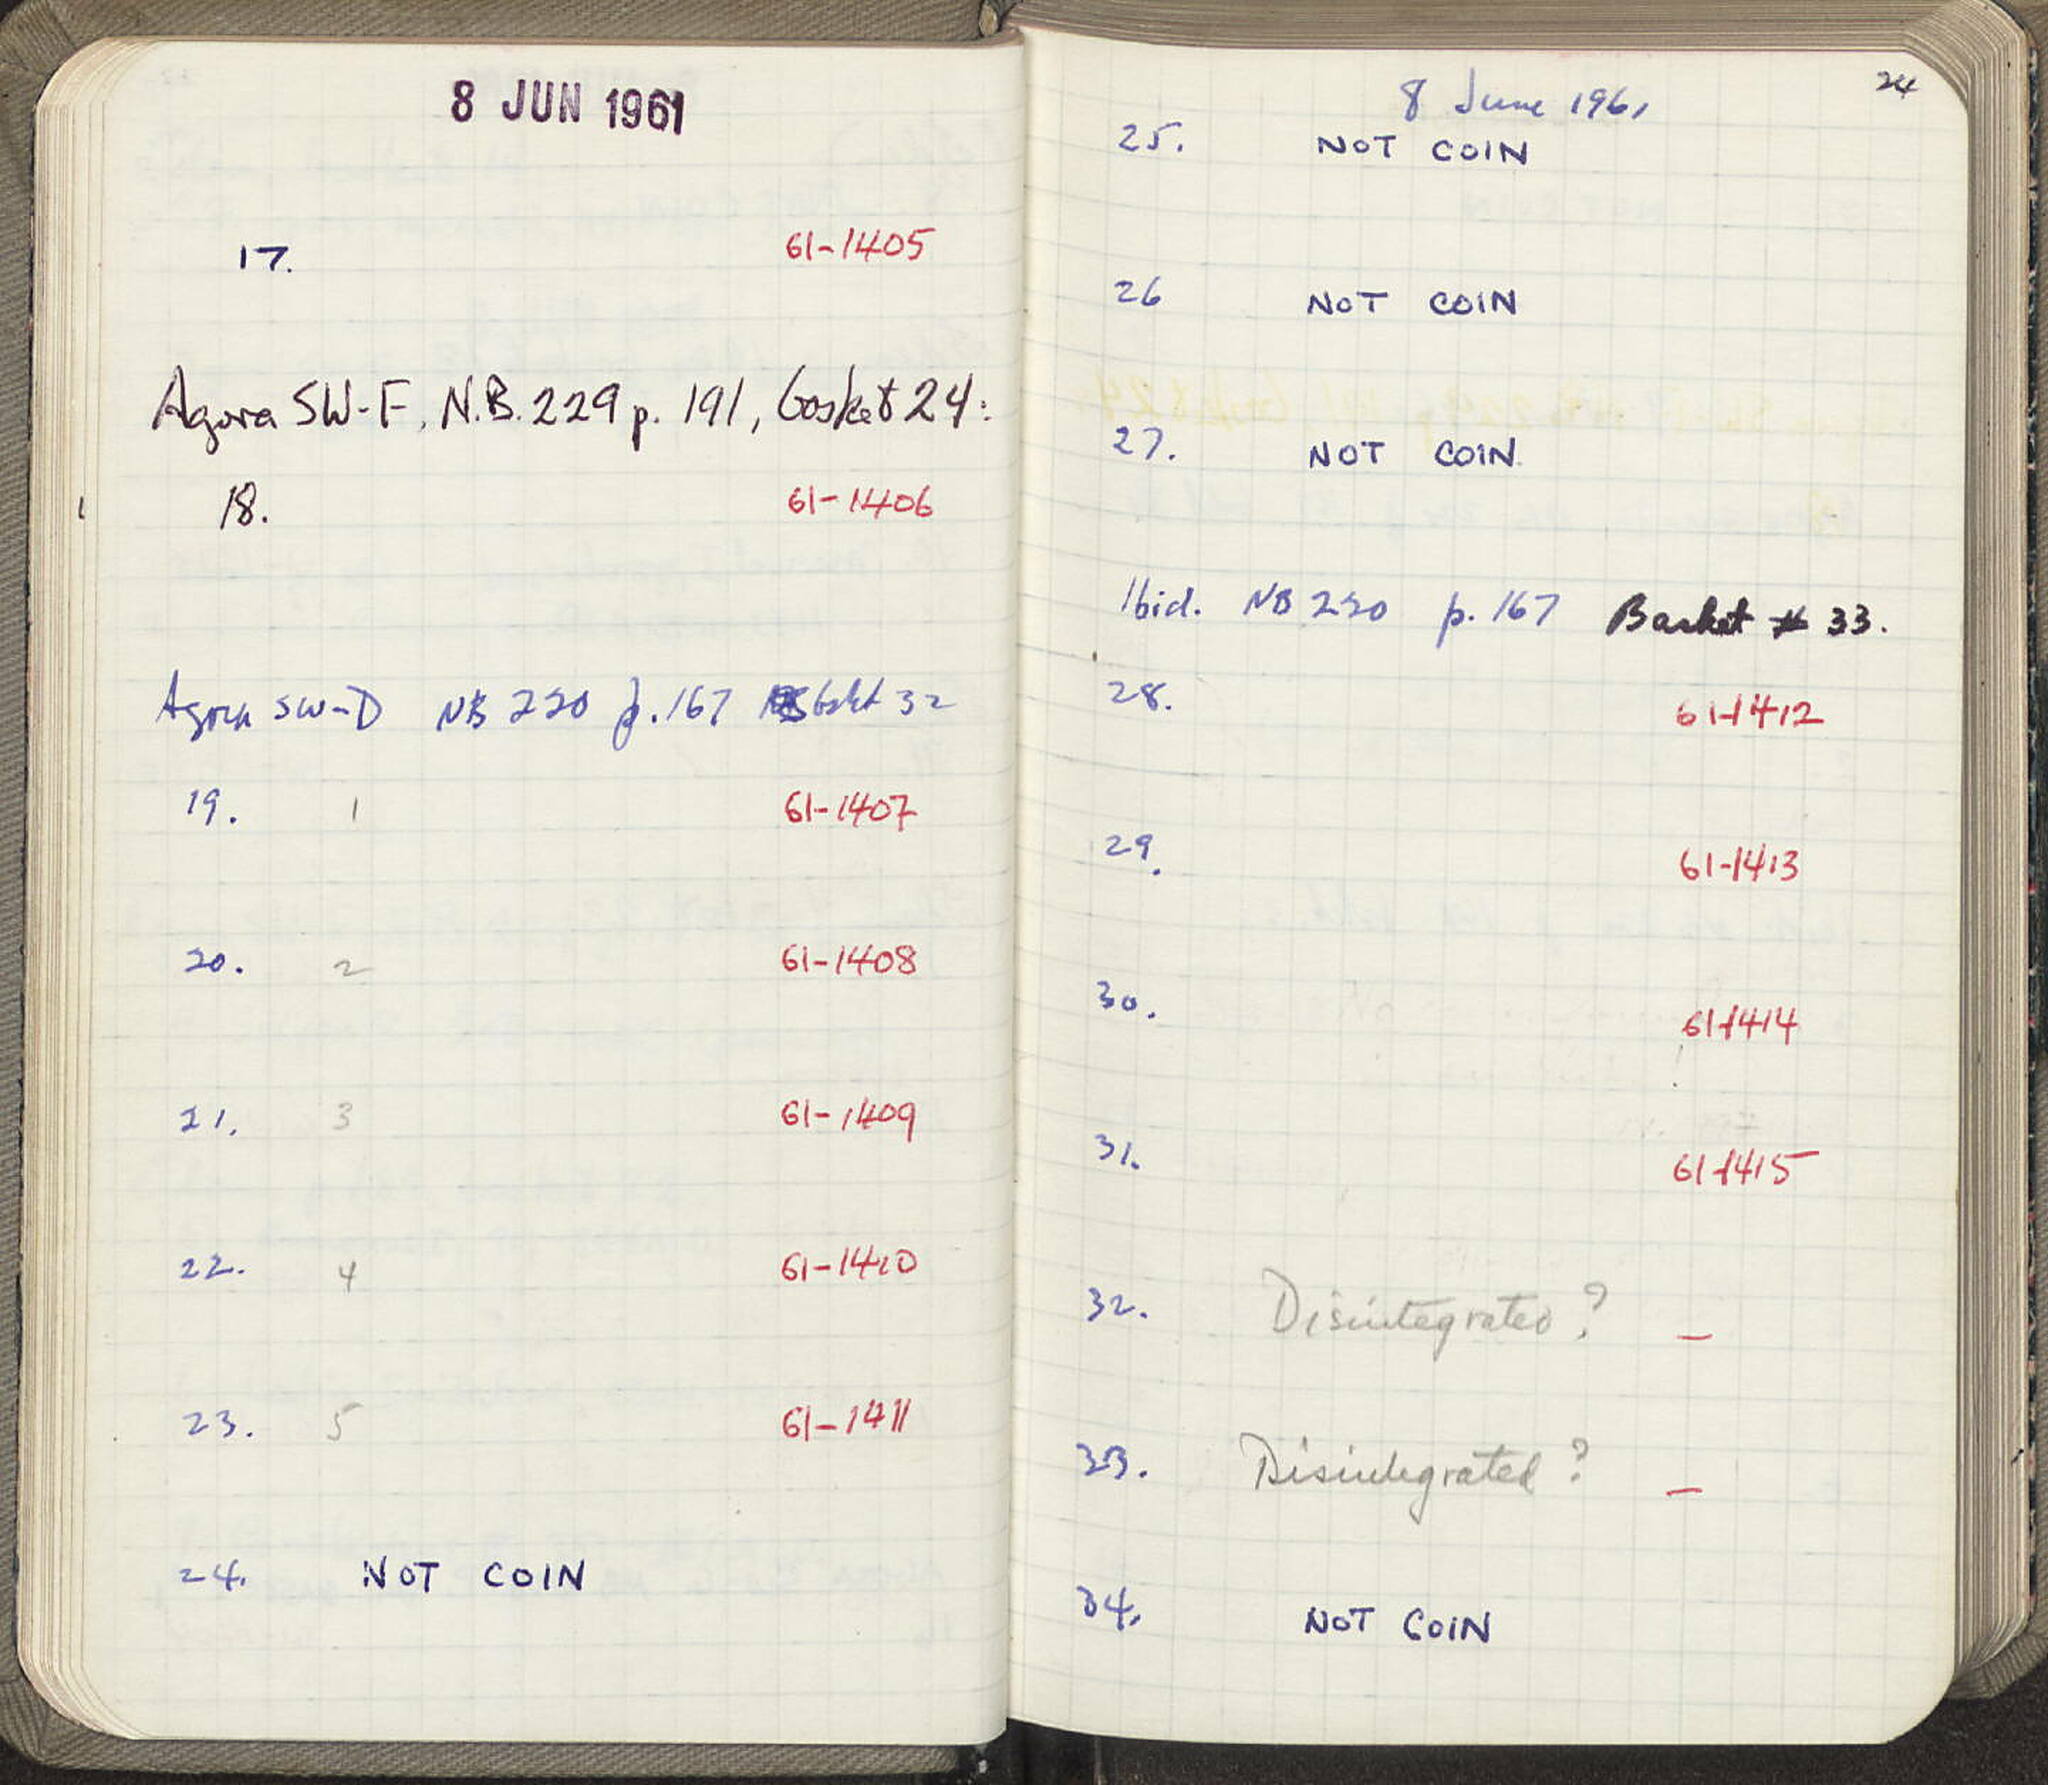 8 JUN 1961
17. 61-1405
Agora SW-F, N.B. 229 p. 191, basket 24:
18. 61-1406
Agora SW-D NB 220 p. 167 bskt 32
19. 1 61-1407
20. 2 61-1408
21. 3 61-1409
22. 4 61-1410
23. 5 61-1411
24. NOT COIN
24
8 June 1961
25. NOT COIN
26 NOT COIN
27. NOT COIN
Ibid. NB 220 p. 167 Basket # 33.
28. 61-1412
29. 61-1413
30. 61-1414
31. 61-1415
32. Disintegrated? —
33. Disintegrated? —
34. NOT COIN